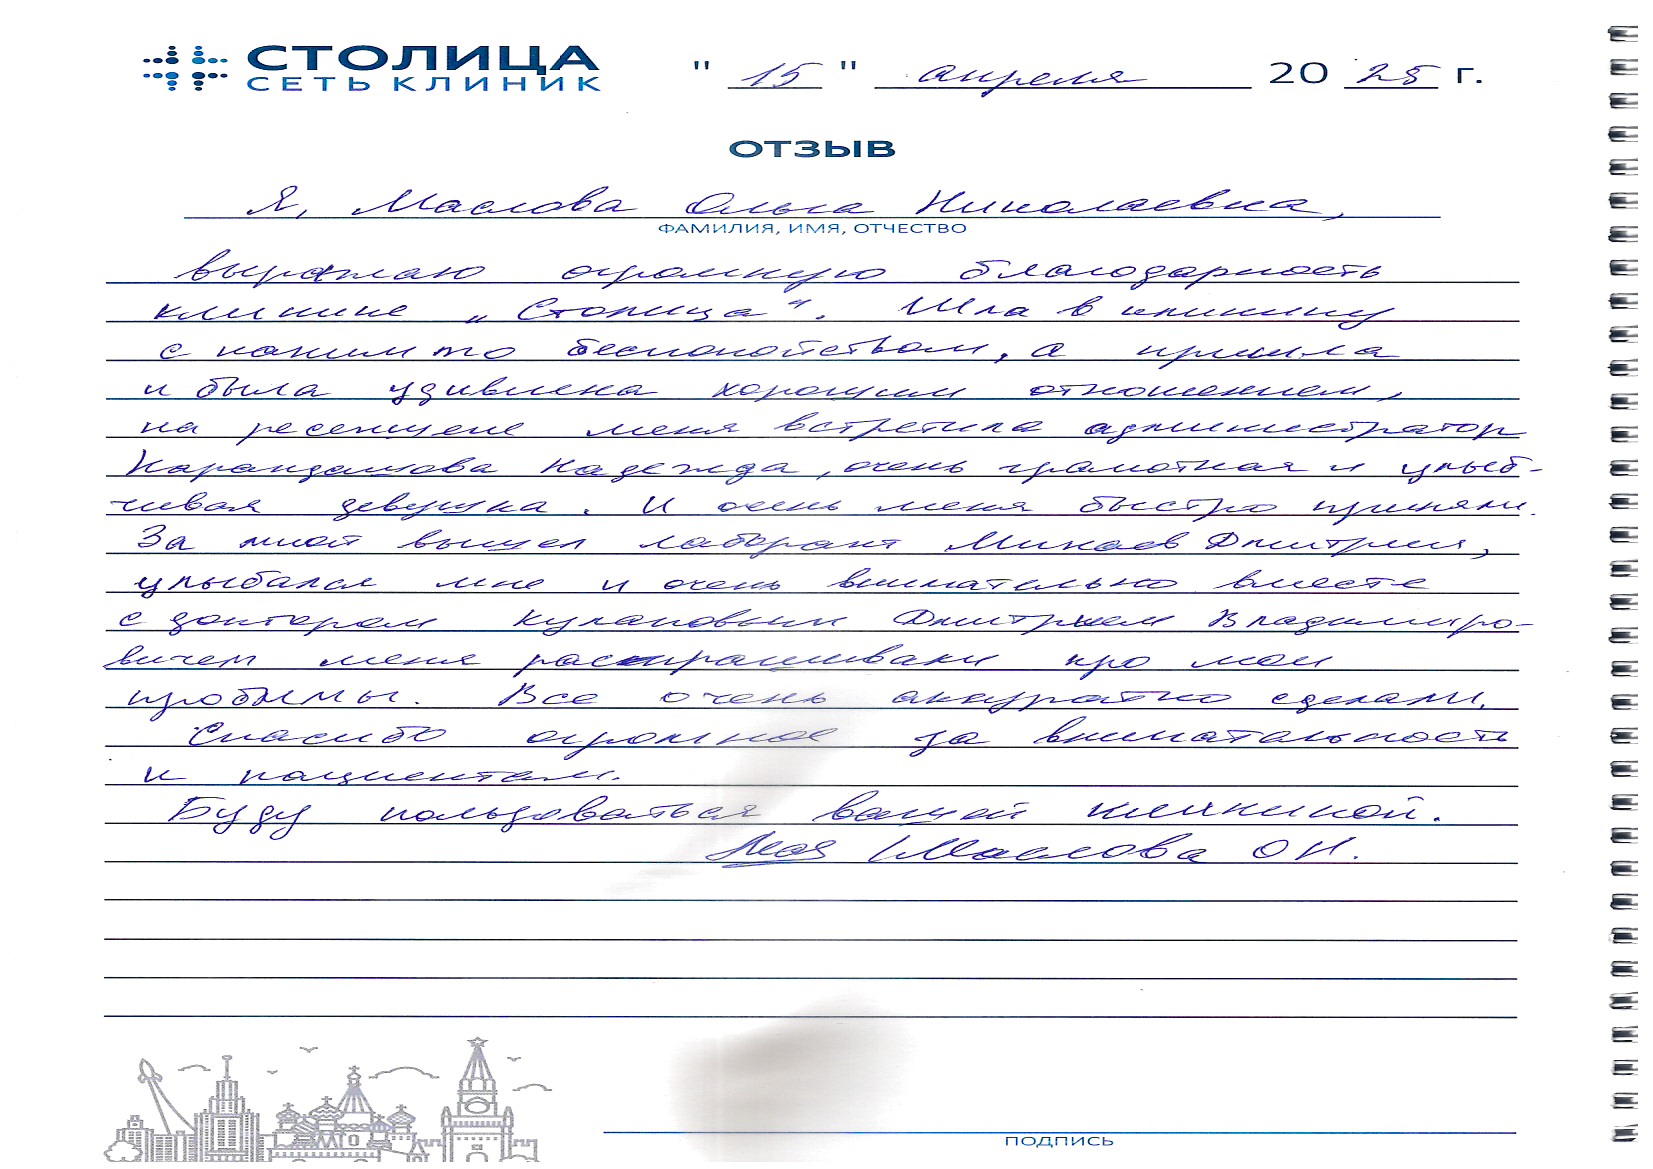 СТОЛИЦА
СЕТЬ КЛИНИК
" 15 " апреля 20 25 г.
ОТЗЫВ
Я, Маслова Ольга Николаевна,
ФАМИЛИЯ, ИМЯ, ОТЧЕСТВО
выражаю огромную благодарность
клинике „Столица“. Шла в клинику
с каким то беспокойством, а пришла
и была удивлена хорошим отношением,
на ресепшене меня встретила администратор
Карандашова Надежда, очень грамотная и улыб-
чивая девушка. И очень меня быстро приняли.
За мной вышел лаборант Минаев Дмитрий,
улыбался мне и очень внимательно вместе
с доктором Дмитрием Владимиро-
вичем меня распрашивали про мои
проблемы. Все очень аккуратно сделали.
Спасибо огромное за внимательность
к пациентам.
Буду пользоваться вашей клиникой.
Маслова О Н.
ПОДПИСЬ